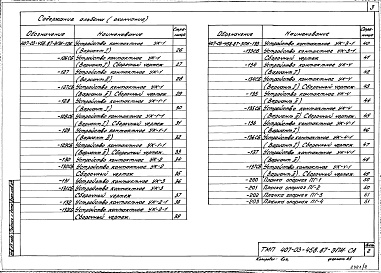 3
Содержание альбома (окончание)
Обозначение Наименование Стра-ница
407-03-458.87-ЭПИ-126 Устройство контактное УК-1
(Вариант I) 26
-126СБ Устройство контактное УК-1
(Вариант I) Сборочный чертеж 27
-127 Устройство контактное УК-1
(Вариант II) 28
-127СБ Устройство контактное УК-1
(Вариант II) Сборочный чертеж 29
-128 Устройство контактное УК-1-1
(Вариант I) 30
-128СБ Устройство контактное УК-1-1
(Вариант I). Сборочный чертеж 31
-129 Устройство контактное УК-1-1
(Вариант II) 32
-129СБ Устройство контактное УК-1-1
(Вариант II). Сборочный чертеж 33
-130 Устройство контактное УК-2 34
-130СБ Устройство контактное УК-2
Сборочный чертеж 35
-131 Устройство контактное УК-3 36
-131СБ Устройство контактное УК-3
Сборочный чертеж 37
-132 Устройство контактное УК-2-1 38
-132СБ Устройство контактное УК-2-1
Сборочный чертеж 39
Обозначение Наименование Стра-ница
407-03-458.87-ЭПИ-133 Устройство контактное УК-3-1 40
-133СБ Устройство контактное УК-3-1
Сборочный чертеж 41
-134 Устройство контактное УК-4
(Вариант I) 42
-134СБ Устройство контактное УК-4
(Вариант I). Сборочный чертеж 43
-135 Устройство контактное УК-4
(Вариант II) 44
-135СБ Устройство контактное УК-4
(Вариант II). Сборочный чертеж 45
-136 Устройство контактное УК-4-1
(Вариант I) 46
-136СБ Устройство контактное УК-4-1
(Вариант I). Сборочный чертеж 47
-137 Устройство контактное УК-4-1
(Вариант II) 48
-137СБ Устройство контактное УК-4-1
(Вариант II). Сборочный чертеж 49
-200 Планка опорная ПГ-1 50
-201 Планка опорная ПГ-2 50
-202 Планка опорная ПГ-3 51
-203 Планка опорная ПГ-4 51
ТМП 407-03-458.87-ЭПИ СА
Лист
2